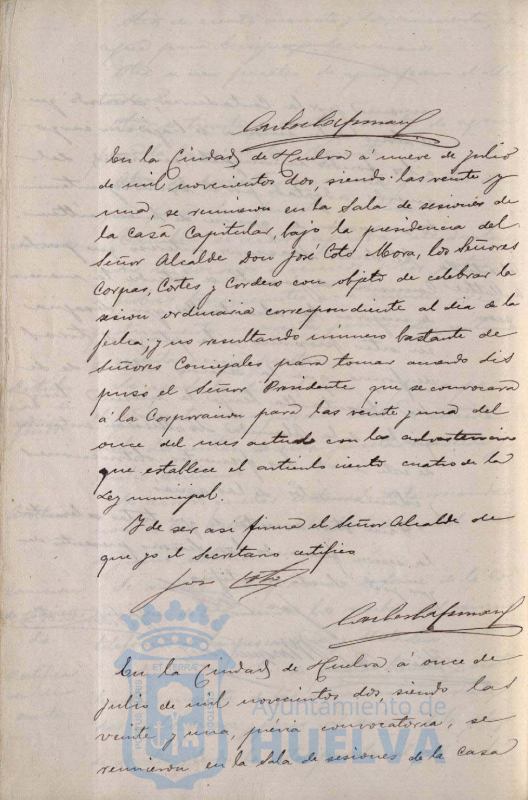 En la Ciudad de Huelva á nueve de julio
de mil novecientos dos, siendo las veinte y
una, se reunieron en la Sala de sesiones de
la Casa Capitular, bajo la presidencia del
Señor Alcalde don José Coto Mora, los Señores
Corpas, Cortes y Cordero con objeto de celebrar la
sesion ordinaria correspondiente al dia de la
fecha; y no resultando número bastante de
Señores Concejales para tomar acuerdo dis
puso el Señor Presidente que se convocara
á la Corporacion para las veinte y una del
once del mes actual con la advertencia
que establece el articulo ciento cuatro de la
Ley municipal.
Y de ser asi firma el Señor Alcalde de
que yo el Secretario certifico
José Coto
En la Ciudad de Huelva á once de
julio de mil novecientos dos siendo las
veinte y una, prévia convocatoria, se
reunieron en la Sala de sesiones de la Casa
Ayuntamiento de
HUELVA